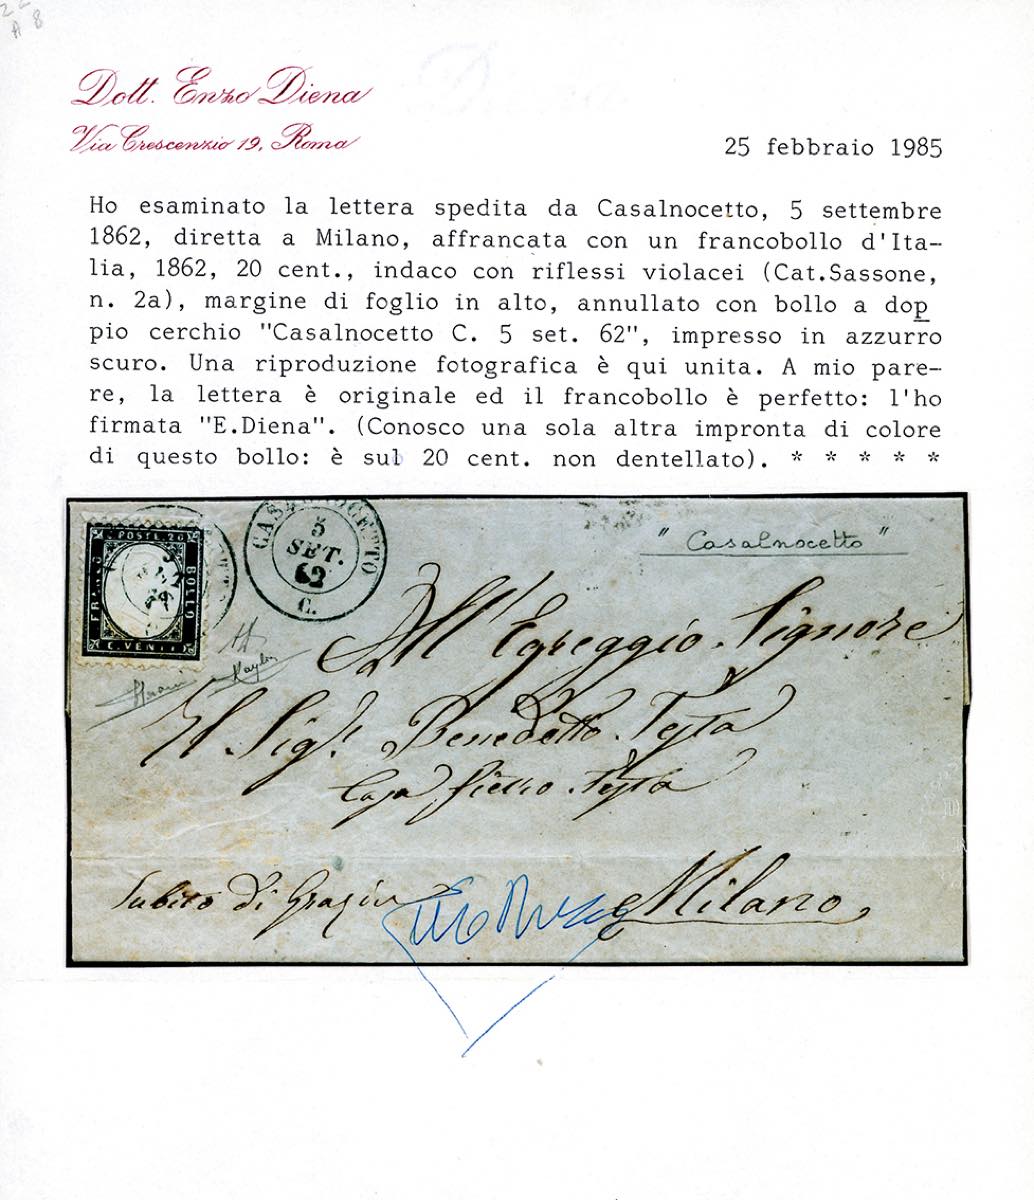 22
A 8
Dott. Enzo Diena
Via Crescenzio 19, Roma
25 febbraio 1985
Ho esaminato la lettera spedita da Casalnocetto, 5 settembre
1862, diretta a Milano, affrancata con un francobollo d'Ita-
lia, 1862, 20 cent., indaco con riflessi violacei (Cat.Sassone,
n. 2a), margine di foglio in alto, annullato con bollo a dop
pio cerchio "Casalnocetto C. 5 set. 62", impresso in azzurro
scuro. Una riproduzione fotografica è qui unita. A mio pare-
re, la lettera è originale ed il francobollo è perfetto: l'ho
firmata "E.Diena". (Conosco una sola altra impronta di colore
di questo bollo: è sul 20 cent. non dentellato). * * * * *
FRANCO
POSTE. 20
BOLLO
C. VENTI
CASALNOCETTO
5
SET.
62
C.
" Casalnocetto "
All' Egreggio Signore
Il Sig.r Benedetto Testa
Casa Testa
Subito di Grazia
Milano